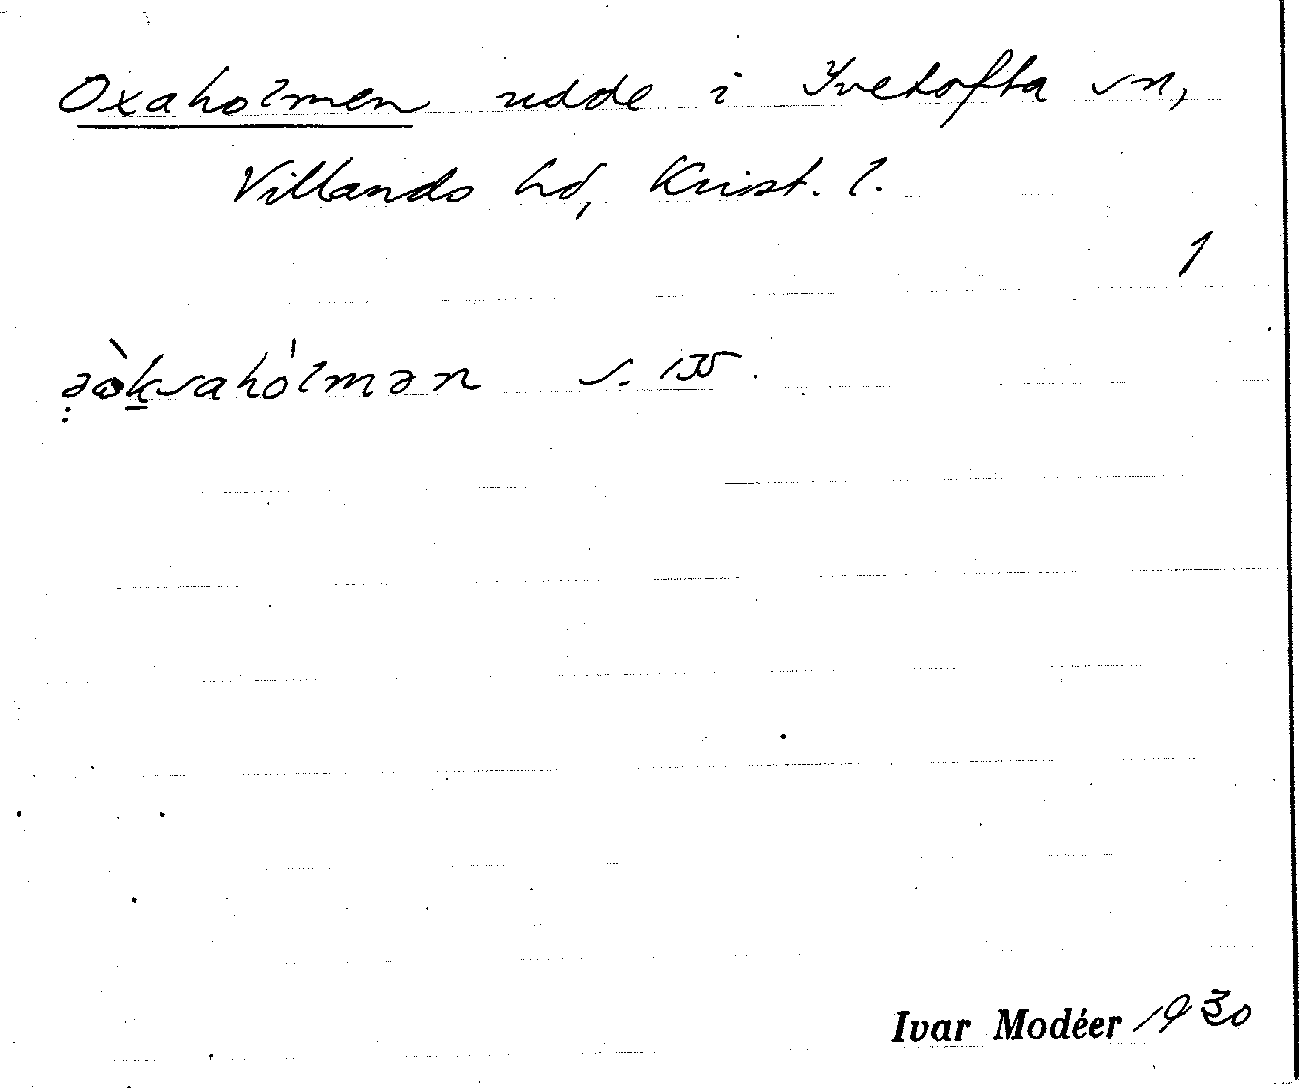 Oxaholmen udde i Ivetofta sn,
Villands hd, Krist. l.
1
əòksahólmən s. 135.
Ivar Modéer 1930